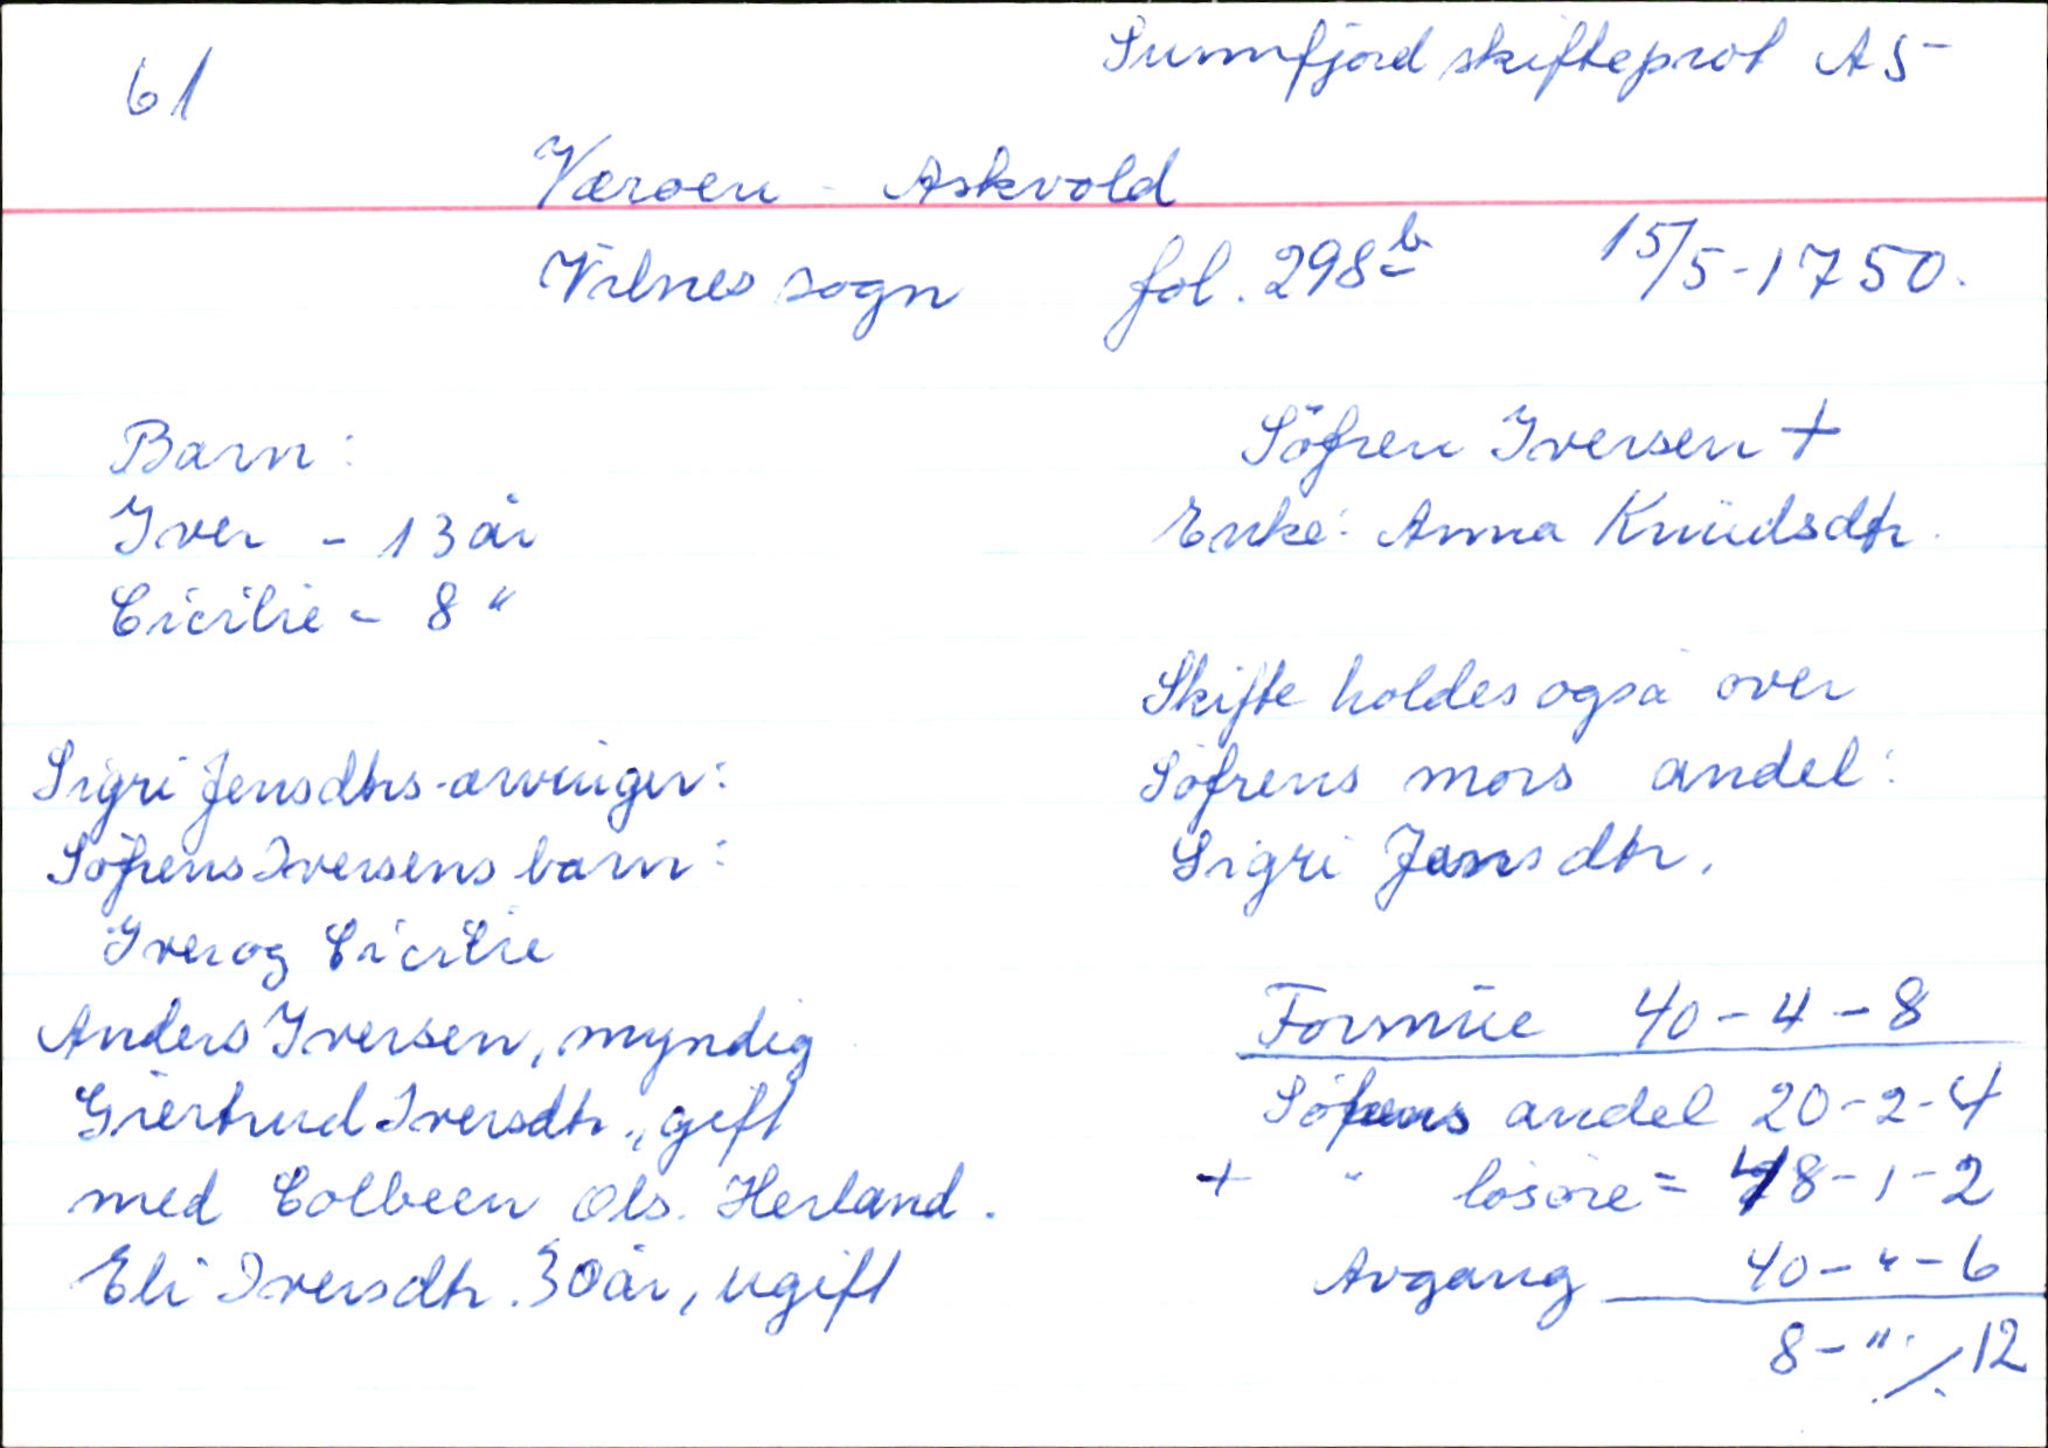 61
Sunnfjord skifteprot A5
Væroen - Askvold
Vilnes sogn fol. 298 b 15/5-1750.
Barn:
Iver - 13 år
Cicilie - 8 "
Sigri Jensdtrs arvinger:
Söfrens Iversens barn:
Iver og Cicilie
Anders Iversen, myndig
Giertrud Iversdtr., gift
med Colbeen Ols. Herland.
Eli Iversdtr. 30 år, ugift
Söfren Iversen +
Enke: Anna Knüdsdtr.
Skifte holdes også over
Söfrens mors andel:
Sigri Jensdtr.
Formüe 40-4-8
Söfrens andel 20-2-4
+ " lösöre = 48-1-2
Avgang 40-"-6
8-" ./. 12